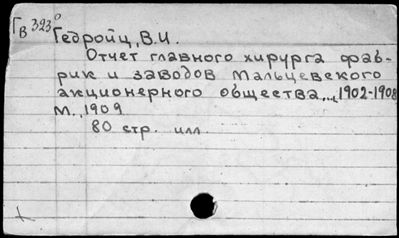 Г
В 323°
Гедройц, В.И.
Отчет главного хирурга фаб-
рик и заводов Мальцевского
акционерного общества,... 1902-1908
М., 1909
80 стр. илл